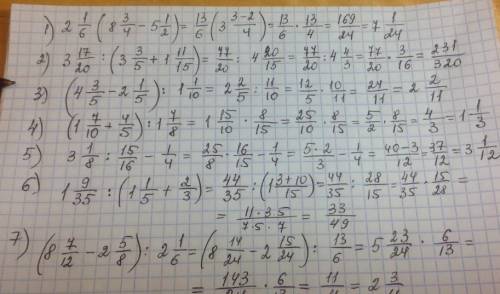 1) 2 1/6 (8 3/4 − 5 1/2) = 13/6 (3 (3−2)/4) = 13/6 · 13/4 = 169/24 = 7 1/24
2) 3 17/20 : (3 3/5 + 1 11/15) = 77/20 : 4 20/15 = 77/20 : 4 4/3 = 77/20 · 3/16 = 231/320
3) (4 3/5 − 2 1/5) : 1 1/10 = 2 2/5 : 11/10 = 12/5 · 10/11 = 24/11 = 2 2/11
4) (1 7/10 + 4/5) : 1 7/8 = 1 15/10 · 8/15 = 25/10 · 8/15 = 5/2 · 8/15 = 4/3 = 1 1/3
5) 3 1/8 : 15/16 − 1/4 = 25/8 · 16/15 − 1/4 = 5·2/3 − 1/4 = 40−3/12 = 37/12 = 3 1/12
6) 1 9/35 : (1 1/5 + 2/3) = 44/35 : (1 3+10/15) = 44/35 : 28/15 = 44/35 · 15/28 =
= 11·3·5/7·5·7 = 33/49
7) (8 7/12 − 2 5/8) : 2 1/6 = (8 14/24 − 2 15/24) : 13/6 = 5 23/24 · 6/13 =
= 143/24 · 6/13 = 11/4 = 2 3/